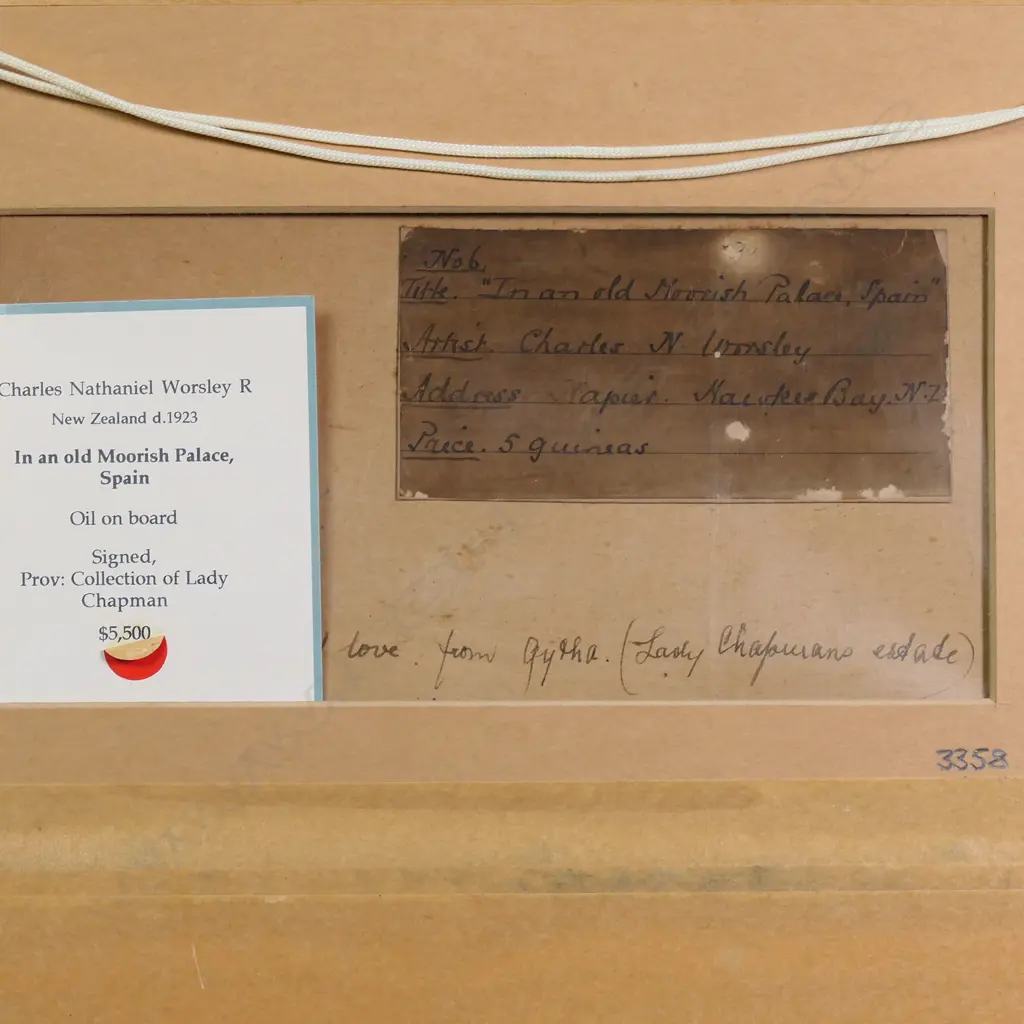 No 6.
Title. "In an old Moorish Palace, Spain"
Artist. Charles N. Worsley
Address Napier. Hawkes Bay. N.Z
Price. 5 guineas
Charles Nathaniel Worsley R
New Zealand d.1923
In an old Moorish Palace,
Spain
Oil on board
Signed,
Prov: Collection of Lady
Chapman
$5,500
love from Gytha. (Lady Chapmans estate)
3358